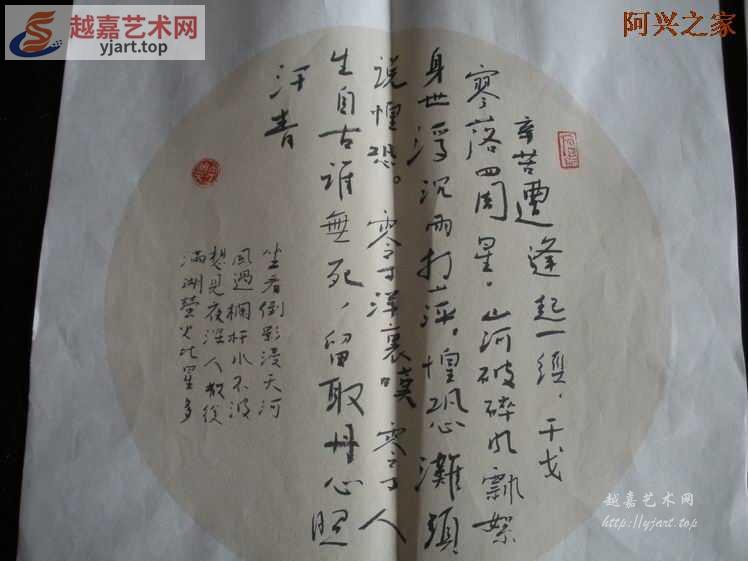 越嘉艺术网
yjart.top
阿兴之家
辛苦遭逢起一經，干戈
寥落四周星。山河破碎风飄絮
身世浮沉雨打萍。惶恐灘頭
说惶恐。零丁洋裏嘆零丁人
生自古谁無死，留取丹心照
汗青
坐看倒影浸天河
风過欄杆水不波
想見夜深人散後
满湖螢火比星多
越嘉艺术网
http://yjart.top